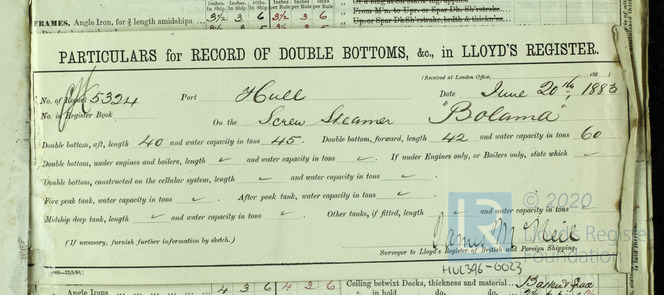 Inches. Inches. Inches. Inches. Inches. Inches.
In Ship In Ship In Ship per Rule per Rule per Rule
FRAMES, Angle Iron, for ¾ length amidships 3½ 3 6 3½ 3 6
From M'n. to Upr. or Spar Dk Sh'rstrake.
Up. or Spar Dk Sh'rstrake, brdth & thickn'ss.
PARTICULARS for RECORD OF DOUBLE BOTTOMS, &c., in LLOYD'S REGISTER.
(Received at London Office,
No. of Report 5324 Port Hull Date June 20th 1883
No. in Register Book On the Screw Steamer "Bolama"
Double bottom, aft, length 40 and water capacity in tons 45. Double bottom, forward, length 42 and water capacity in tons 60
Double bottom, under engines and boilers, length ✓ and water capacity in tons ✓. If under Engines only, or Boilers only, state which ✓
Double bottom, constructed on the cellular system, length ✓ and water capacity in tons ✓
Fore peak tank, water capacity in tons ✓. After peak tank, water capacity in tons ✓.
Midship deep tank, length ✓ and water capacity in tons ✓. Other tanks, if fitted, length ✓ and water capacity in tons
(If necessary, furnish further information by sketch.)
Surveyor to Lloyd's Register of British and Foreign Shipping.
LR
© 2020
Lloyd's Register
Foundation
HUL396-0023
Angle Irons 4 3 6 4 3 6 Ceiling betwixt Decks, thickness and material
in hold do. do.